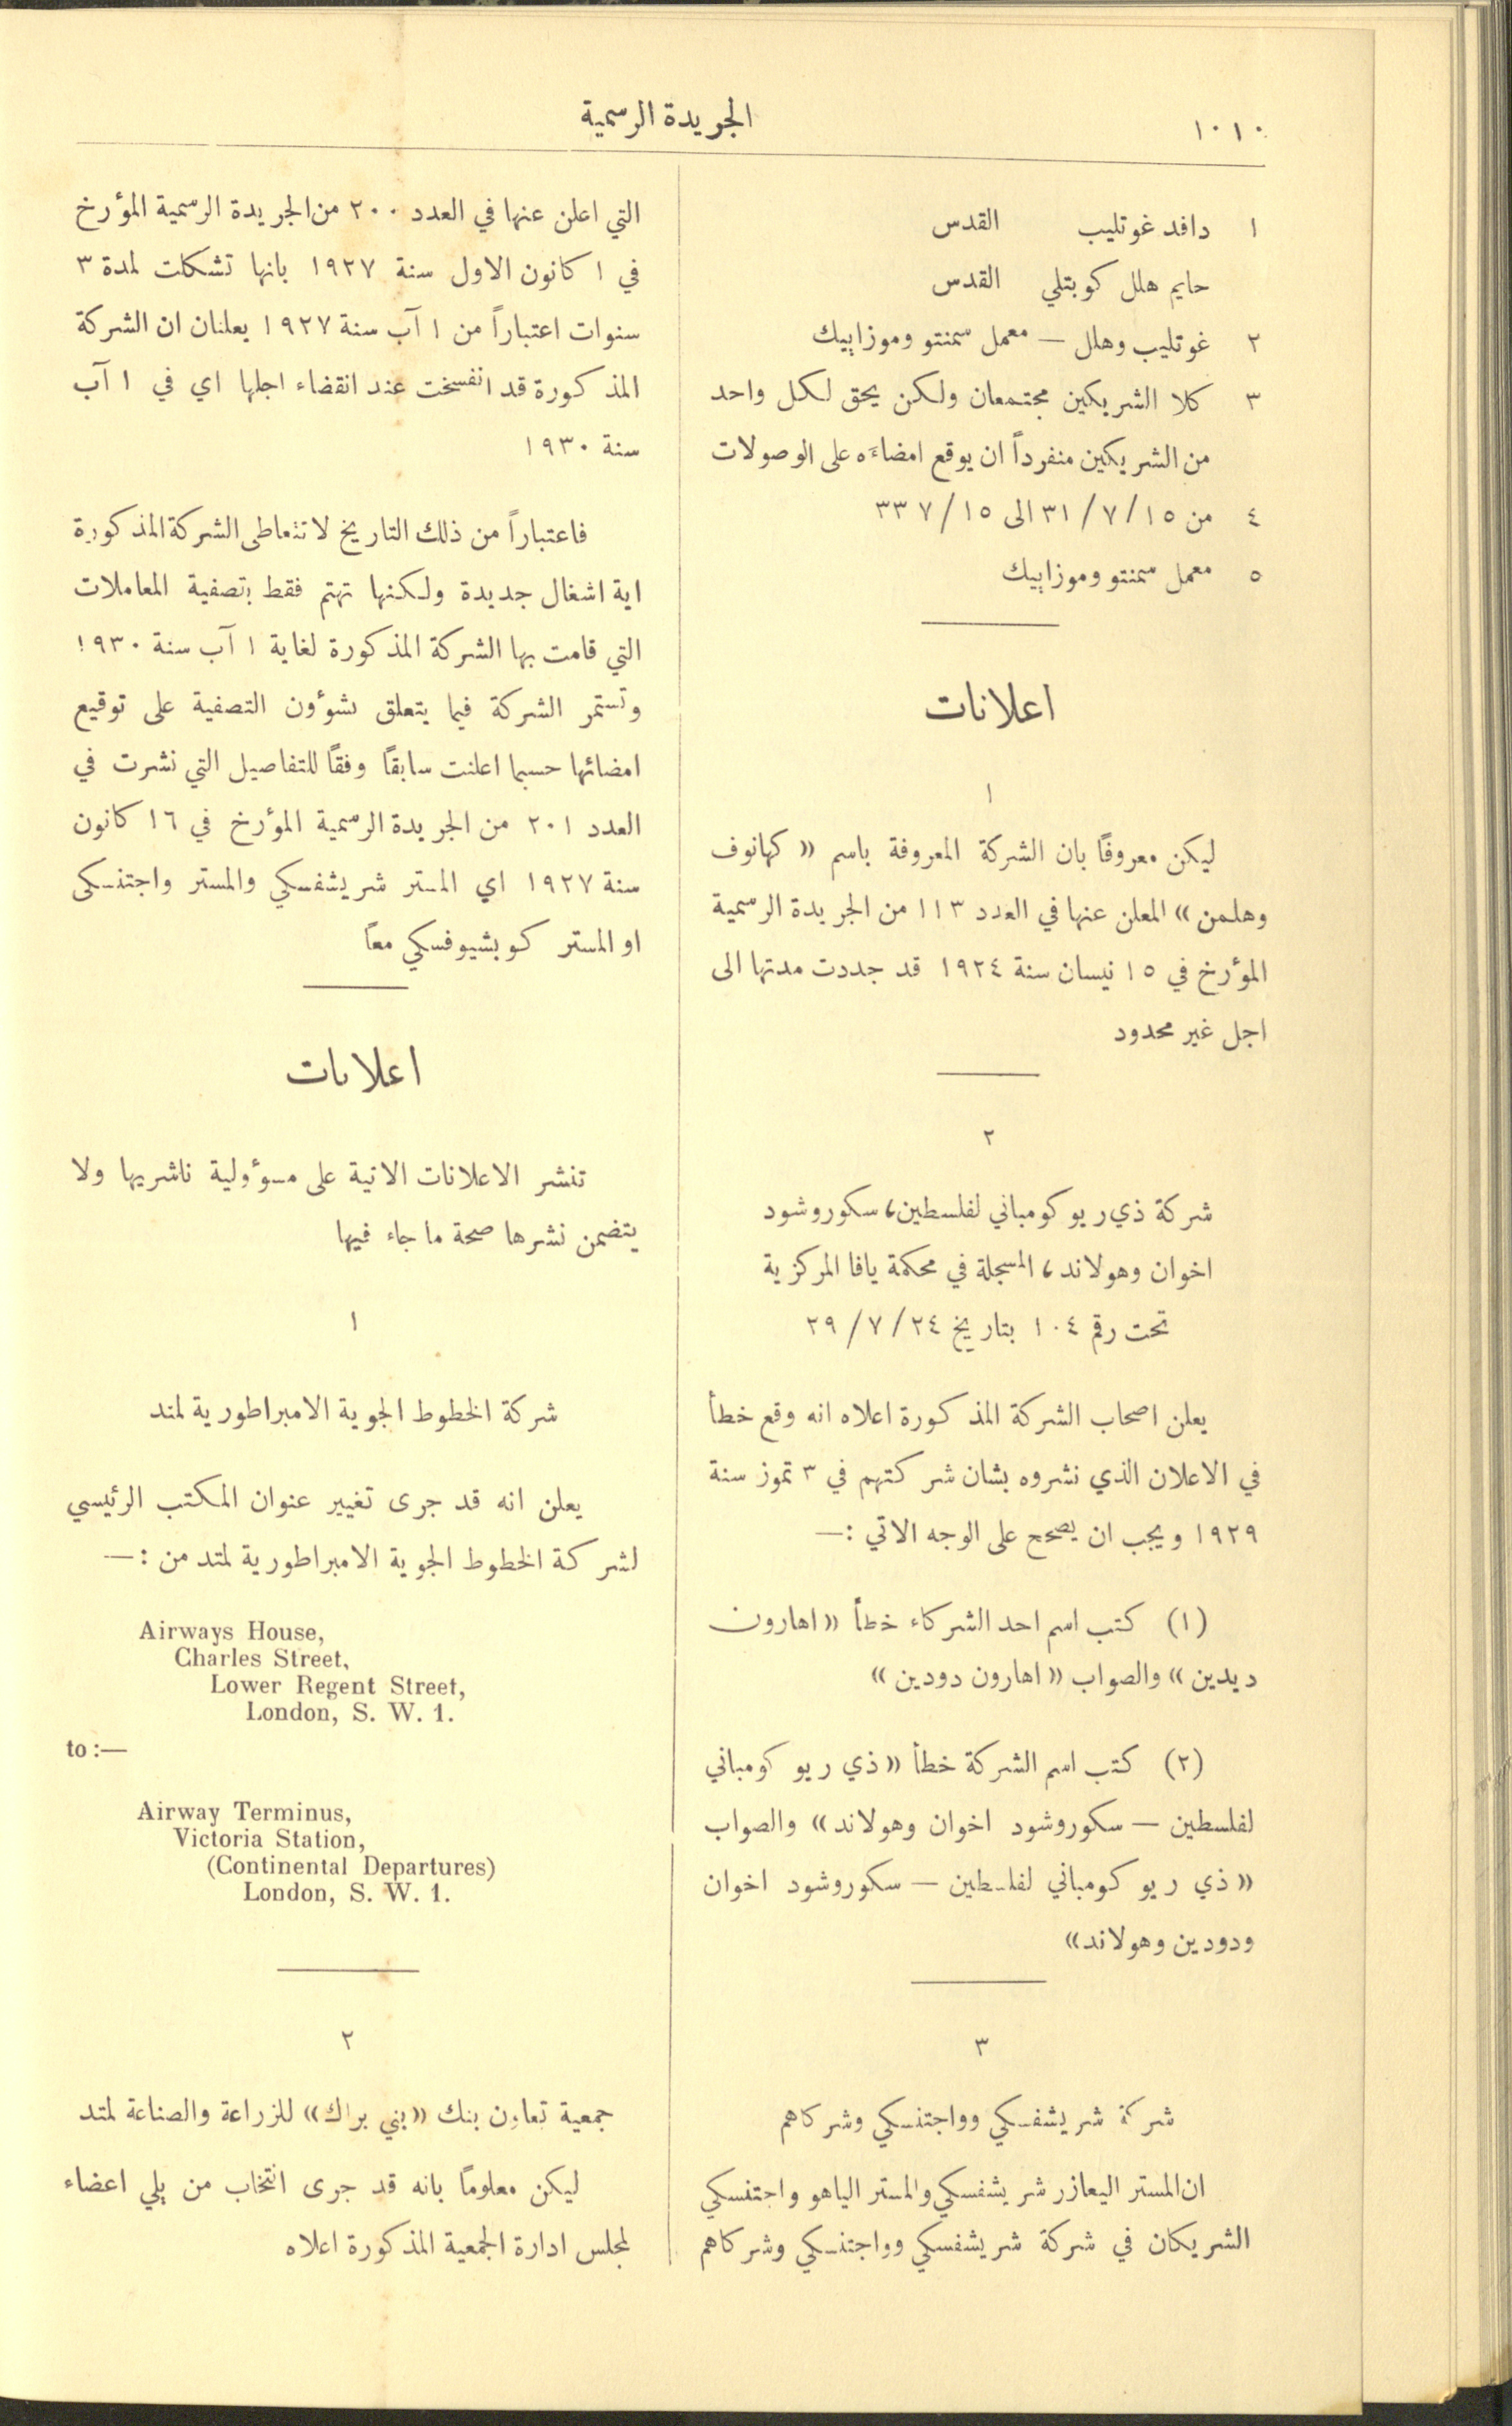 ١٠١٠
الجريدة الرسمية
١ دافد غوتليب القدس
حايم هلل كوبتلي القدس
٢ غوتليب وهلل — معمل سمنتو وموزاييك
٣ كلا الشريكين مجتمعان ولكن يحق لكل واحد
من الشريكين منفرداً ان يوقع امضاءَه على الوصولات
٤ من ١٥/٧/٣١ الى ١٥/٧ ٣٣
٥ معمل سمنتو وموزاييك
اعلانات
١
ليكن معروفًا بان الشركة المعروفة باسم «كهانوف
وهلمن» المعلن عنها في العدد ١١٣ من الجريدة الرسمية
المؤرخ في ١٥ نيسان سنة ١٩٢٤ قد جددت مدتها الى
اجل غير محدود
٢
شركة ذي ريو كومباني لفلسطين، سكوروشود
اخوان وهولاند، المسجلة في محكمة يافا المركزية
تحت رقم ١٠٤ بتاريخ ٢٤/٧/٢٩
يعلن اصحاب الشركة المذكورة اعلاه انه وقع خطأ
في الاعلان الذي نشروه بشان شركتهم في ٣ تموز سنة
١٩٢٩ ويجب ان يصحح على الوجه الاتي :—
(١) كتب اسم احد الشركاء خطأ «اهارون
ديدين» والصواب «اهارون دودين»
(٢) كتب اسم الشركة خطأ «ذي ريو كومباني
لفلسطين — سكوروشود اخوان وهولاند» والصواب
«ذي ريو كومباني لفلسطين — سكوروشود اخوان
ودودين وهولاند»
٣
شركة شريشفسكي وواجتنسكي وشركاهم
ان المستر اليعازر شريشفسكي والمستر الياهو واجتنسكي
الشريكان في شركة شريشفسكي وواجتنسكي وشركاهم
التي اعلن عنها في العدد ٢٠٠ من الجريدة الرسمية المؤرخ
في ١ كانون الاول سنة ١٩٢٧ بانها تشكلت لمدة ٣
سنوات اعتباراً من ١ آب سنة ١٩٢٧ يعلنان ان الشركة
المذكورة قد انفسخت عند انقضاء اجلها اي في ١ آب
سنة ١٩٣٠
فاعتباراً من ذلك التاريخ لا تتعاطى الشركة المذكورة
اية اشغال جديدة ولكنها تهتم فقط بتصفية المعاملات
التي قامت بها الشركة المذكورة لغاية ١ آب سنة ١٩٣٠
وتستمر الشركة فيما يتعلق بشؤون التصفية على توقيع
امضائها حسبما اعلنت سابقًا وفقًا للتفاصيل التي نشرت في
العدد ٢٠١ من الجريدة الرسمية المؤرخ في ١٦ كانون
سنة ١٩٢٧ اي المستر شريشفسكي والمستر واجتنسكى
او المستر كوبشيوفسكي معاً
اعلانات
تنشر الاعلانات الاتية على مسؤولية ناشريها ولا
يتضمن نشرها صحة ما جاء فيها
١
شركة الخطوط الجوية الامبراطورية لمتد
يعلن انه قد جرى تغيير عنوان المكتب الرئيسي
لشركة الخطوط الجوية الامبراطورية لمتد من :—
Airways House,
Charles Street,
Lower Regent Street,
London, S. W. 1.
to :—
Airway Terminus,
Victoria Station,
(Continental Departures)
London, S. W. 1.
٢
جمعية تعاون بنك «بني براك» للزراعة والصناعة لمتد
ليكن معلومًا بانه قد جرى انتخاب من يلي اعضاء
لمجلس ادارة الجمعية المذكورة اعلاه